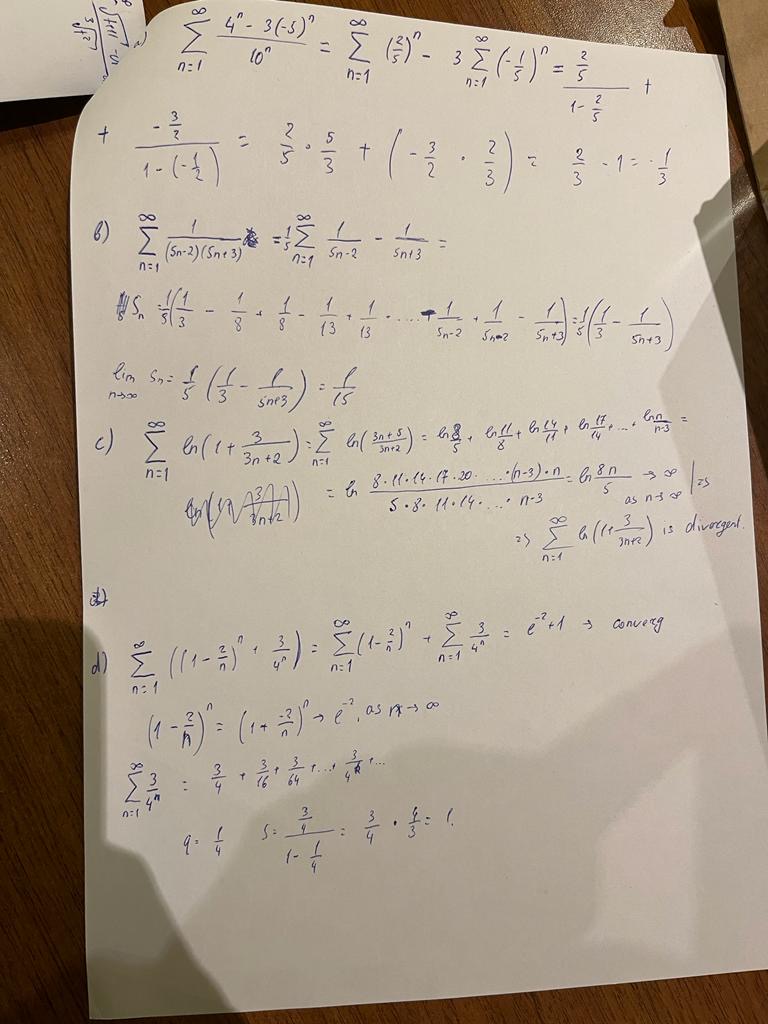 ∑_{n=1}^{∞} (4^n - 3(-5)^n)/10^n = ∑_{n=1}^{∞} (2/5)^n - 3∑_{n=1}^{∞} (-1/5)^n = (2/5)/(1 - 2/5) +
+ (-3/2)/(1 - (-1/2)) = 2/5 · 5/3 + (-3/2 · 2/3) = 2/3 - 1 = -1/3
b) ∑_{n=1}^{∞} 1/((5n-2)(5n+3)) = 1/5 ∑_{n=1}^{∞} 1/(5n-2) - 1/(5n+3) =
S_n = 1/5 (1/3 - 1/8 + 1/8 - 1/13 + 1/13 - .... + 1/(5n-2) + 1/(5n-2) - 1/(5n+3)) = 1/5 (1/3 - 1/(5n+3))
lim_{n→∞} S_n = 1/5 (1/3 - 1/(5n+3)) = 1/15
c) ∑_{n=1}^{∞} ln(1 + 3/(3n+2)) = ∑_{n=1}^{∞} ln((3n+5)/(3n+2)) = ln 8/5 + ln 11/8 + ln 14/11 + ln 17/14 + ... + ln n/(n-3) =
= ln (8·11·14·17·20· ... ·(n-3)·n)/(5·8·11·14· ... · n-3) = ln 8n/5 → ∞ as n→∞ | =>
=> ∑_{n=1}^{∞} ln(1 + 3/(3n+2)) is divergent.
d) ∑_{n=1}^{∞} ((1 - 2/n)^n + 3/4^n) = ∑_{n=1}^{∞} (1 - 2/n)^n + ∑_{n=1}^{∞} 3/4^n = e^{-2} + 1 → converg
(1 - 2/n)^n = (1 + -2/n)^n → e^{-2}, as n→∞
∑_{n=1}^{∞} 3/4^n = 3/4 + 3/16 + 3/64 + ... + 3/4^n ...
q = 1/4 S = (3/4)/(1 - 1/4) = 3/4 · 4/3 = 1.